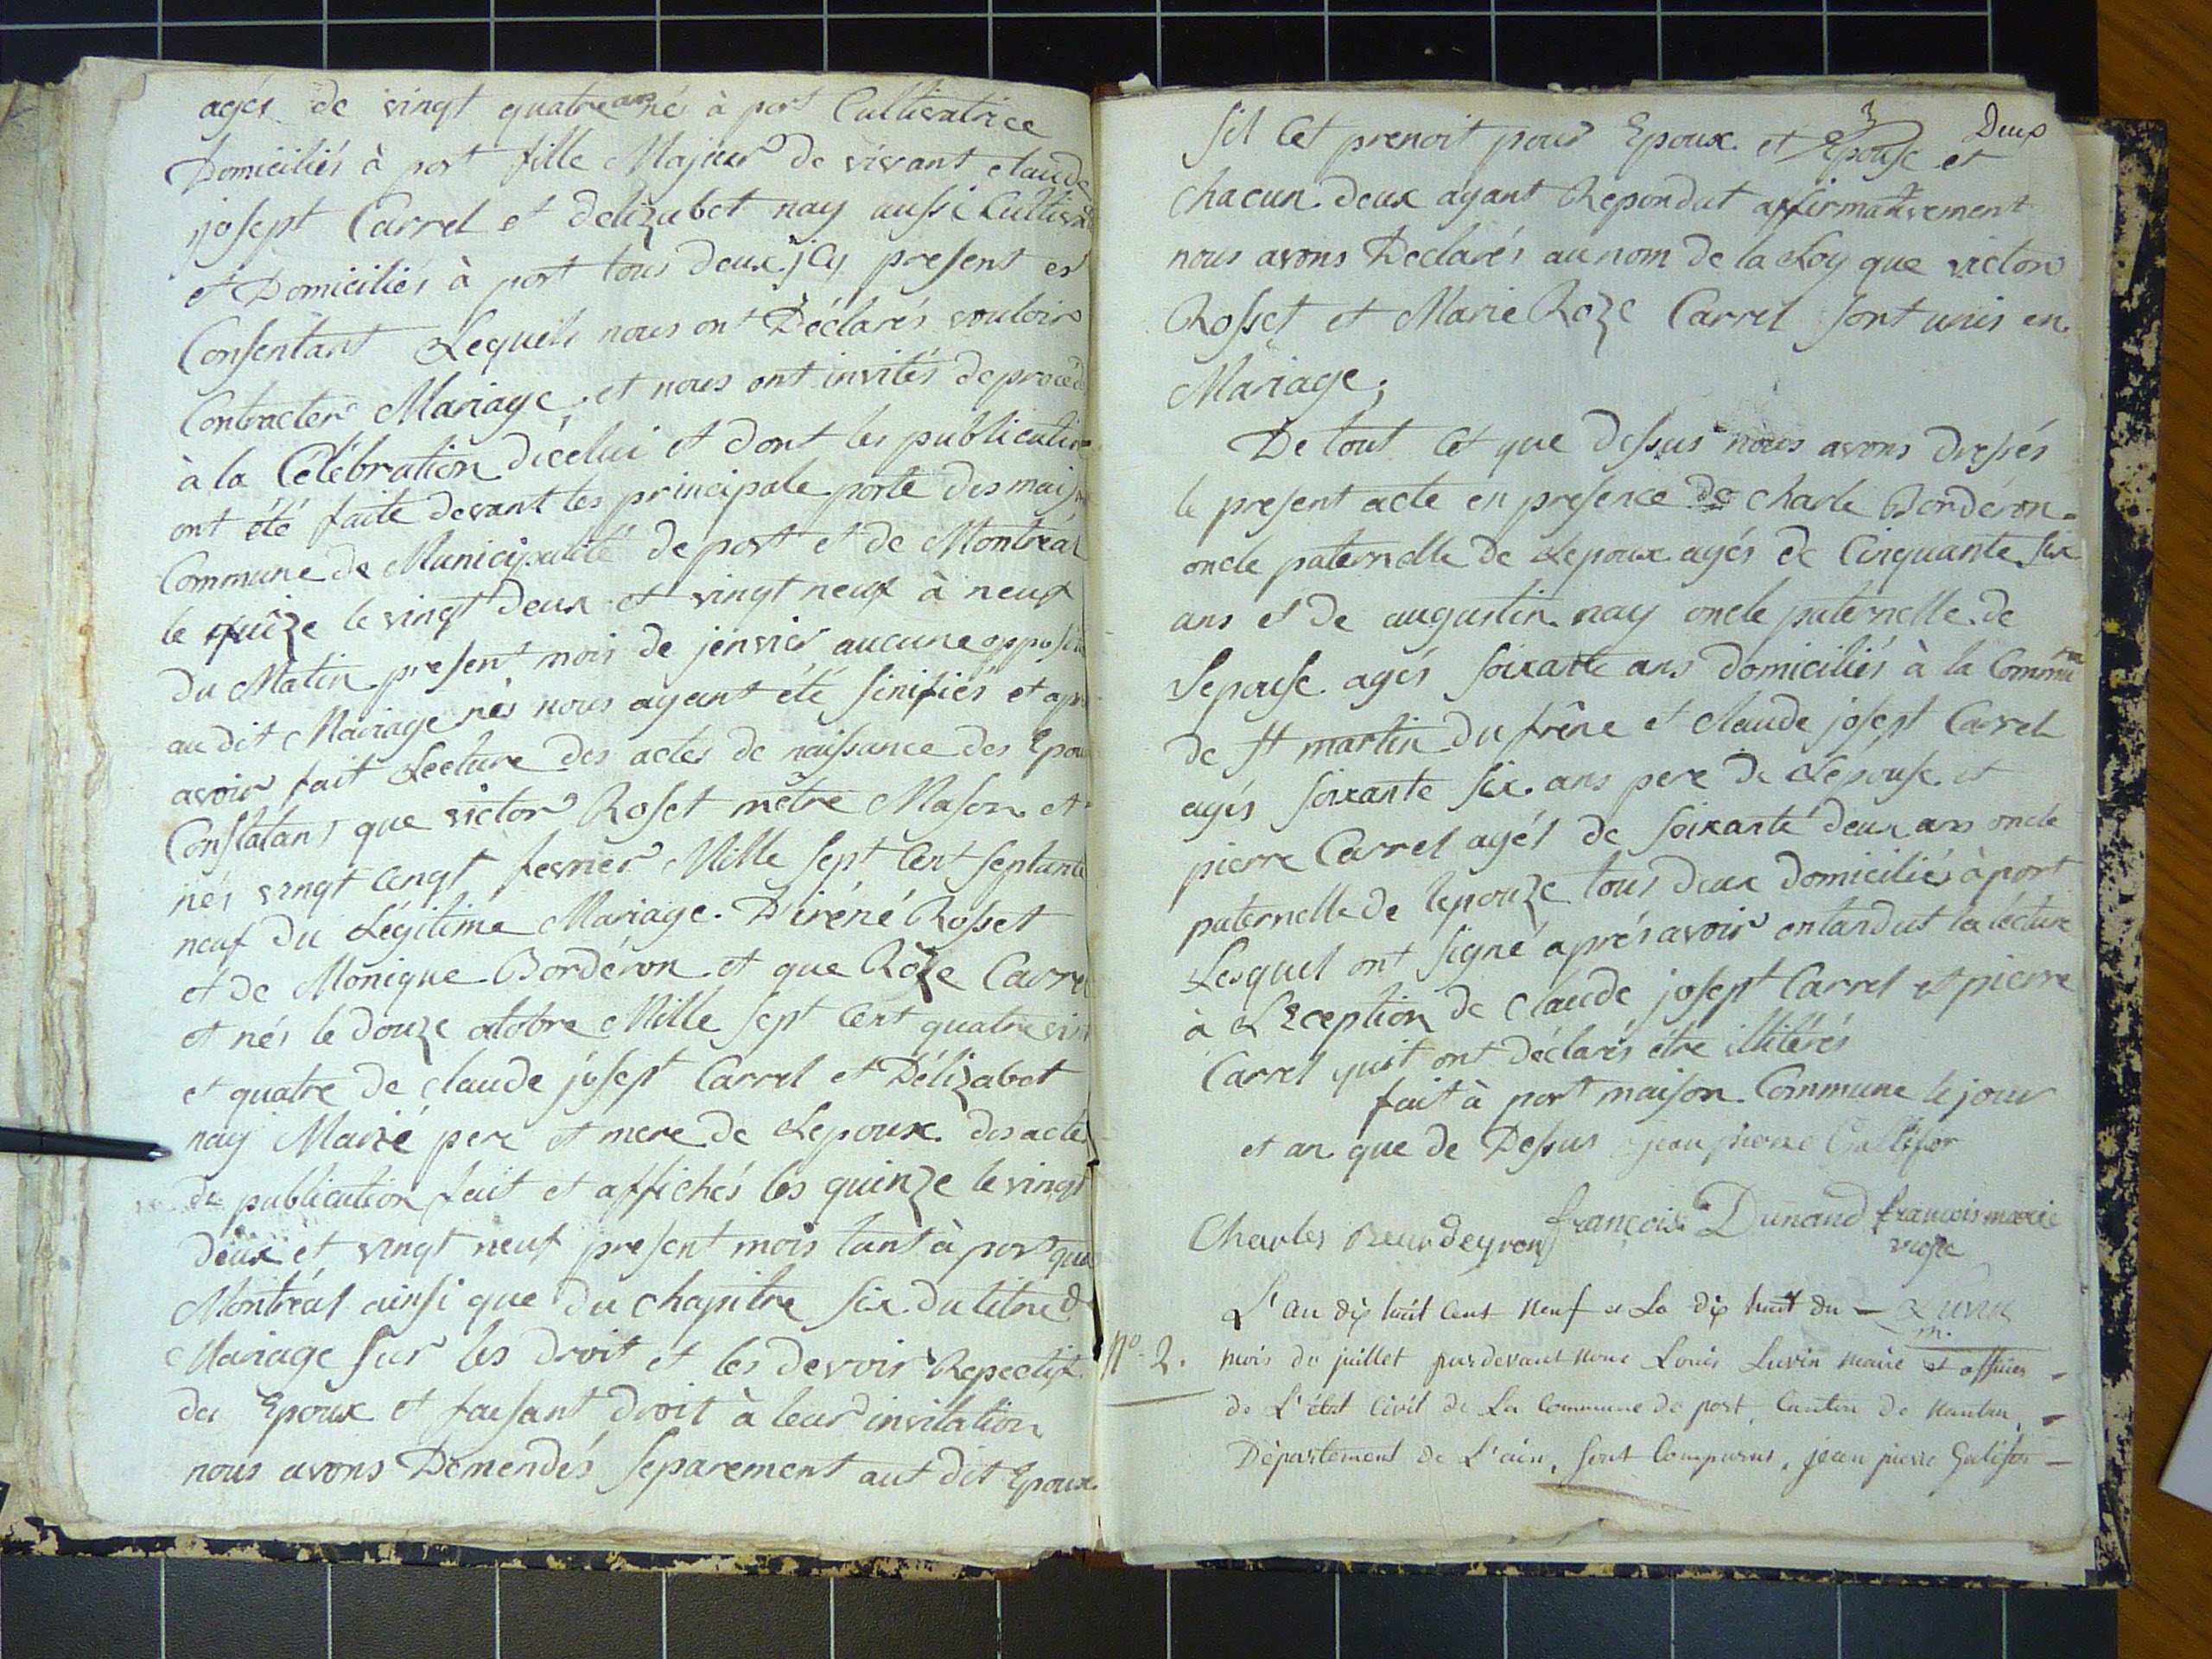 agés de vingt quatre ans né à port Cultivatrice
Domiciliés à port fille Majeur de vivant claude
josept Carrel et delizabet nay aussi Cultiv
et Domiciliés à port tous deux jcy present et
Consentant Lequels nous ont Déclarés vouloir
Contracter Mariage et nous ont invités de procéd
à la Célébration dicelui et dont les publication
ont été faite devant les principale porte des mais
Commune de Municipalité de port et de Montréal
le quize le vingt deux et vingt neuf à neuf
du Matin present mois de jenvier aucune opposi
au dit Mariage nés nous ayant été sinifiés et apr
avoir fait Lecture des actes de naissance des Epou
Constatant que victor Roset mêtre Mason et
nés vingt cenqt fevrier Mille sept Cent septante
neuf du Légitime Mariage D'iréné Rosset
et de Monique Bordéron et que Rôze Carrel
et nés le douze octobre Mille sept Cent quatre vin
et quatre de claude josept Carrel et Délizabet
nay Marié pere et mere de Lepoux des actes
de publication fait et affichés les quinze le vingt
deux et vingt neuf present mois tant à port que
Montréal ainsi que du chapitre six du titre d
Mariage sur les droit et les devoir Repectif
des Epoux et faisant droit à leur invitation
nous avons Demendés separement aut dit Epoux
3 Deux
sil Cet prenoit pour Epoux et Epouse et
chacun deux ayant Repondut affirmativement
nous avons Declarés au nom de la Loy que victor
Rosset et Marie Roze Carrel sont unis en
Mariage;
De tout Cet que dessus nous avons dressés
le present acte en presence de charle Bordéron
oncle paternelle de Lepoux agés de Cinquante six
ans et de augustin nay oncle paternelle de
Lepouse agés soixante ans domiciliés à la Commune
de St martin du frêne et claude josept Carrel
agés soixante six ans pere de Lepouse et
pierre Carrel agés de soixante deux ans oncle
paternelle de lepouze tous deux domiciliés à port
Lesquel ont signé aprés avoir entandut la lécture
à LEception de claude josept Carrel et pierre
Carrel quit ont déclarés être illitérés
fait à port maison Commune le jour
et an que de Dessus jean pierre Gallifor
Charles Beurdeyron françois Dunand francois marie
Luvin
m.
N° 2.
L'an dix huit Cent neuf et Le dix huit du
mois de juillet pardevant nous Louis Luvin maire et officier
de L'état Civil de La Commune de port, Canton de nantua,
Département de L'ain, sont Comparus, jean pierre Galifor